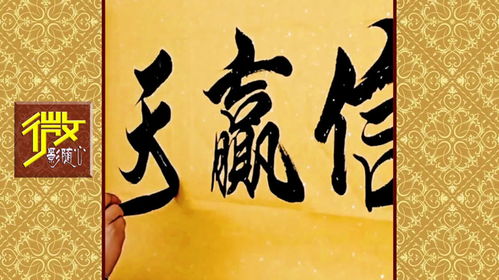 信贏天
微
影随心